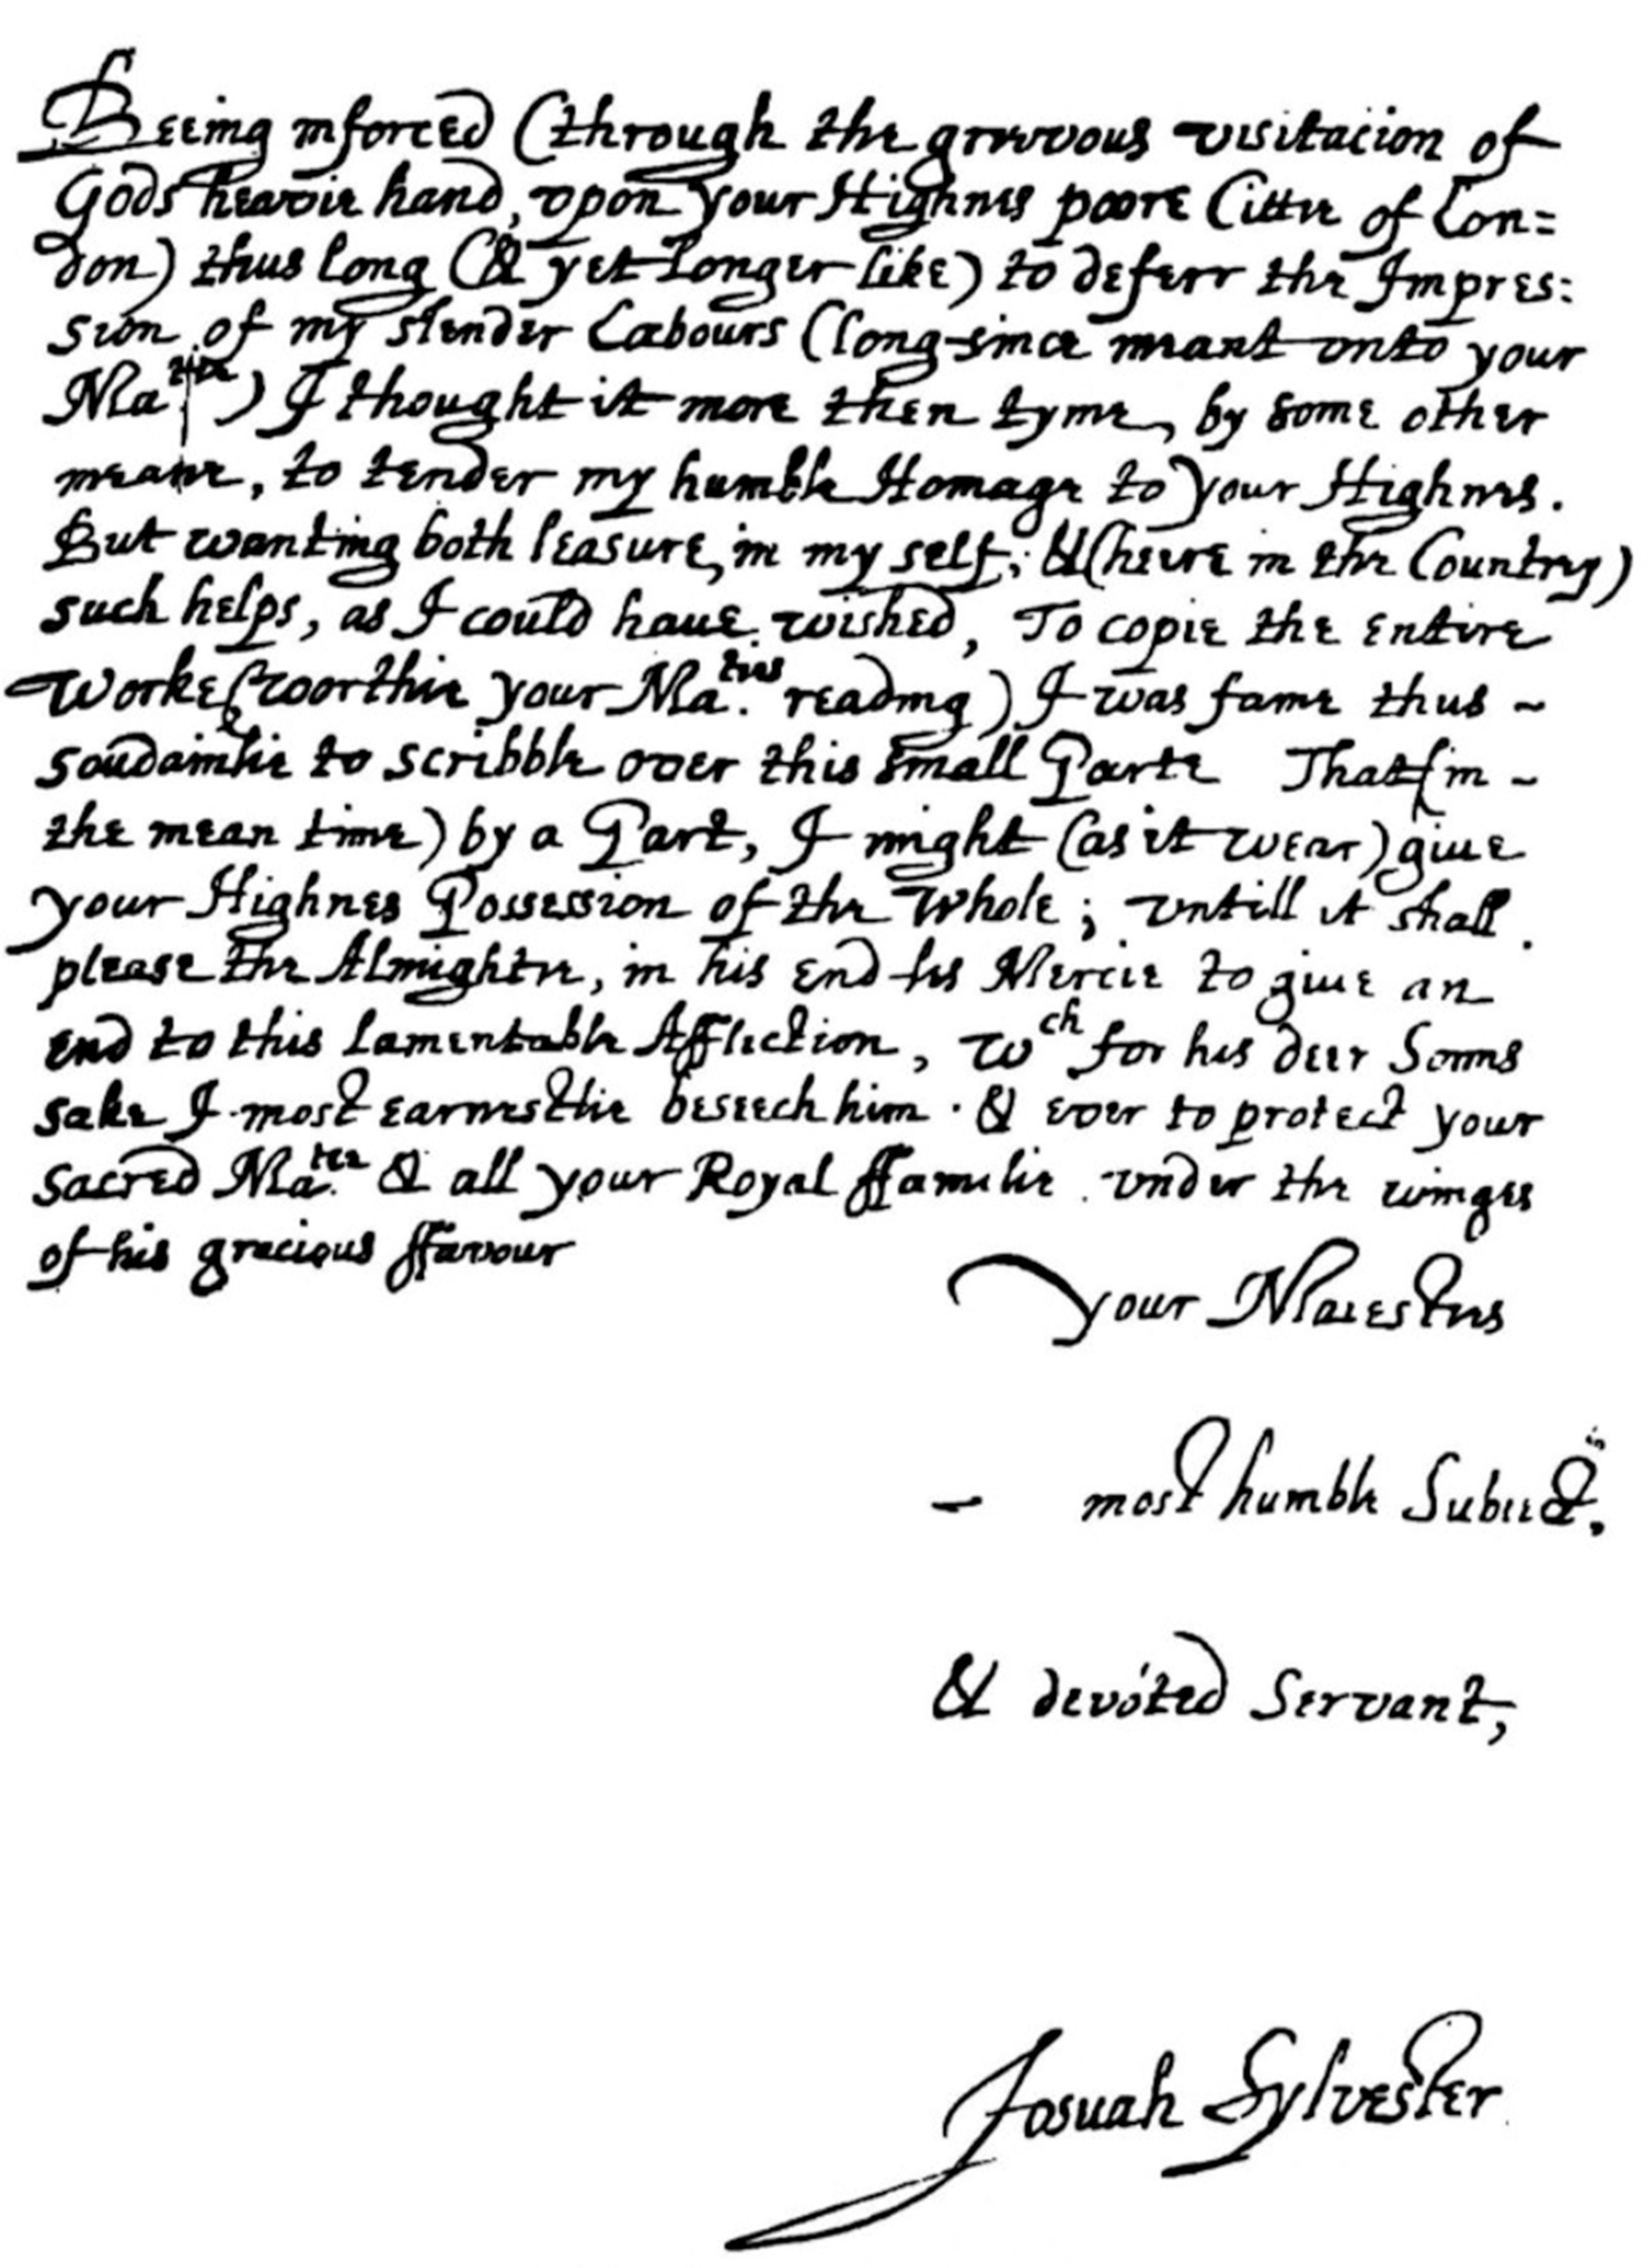 Beeing inforced (through the grievous visitacion of
Gods heavie hand, vpon your Highnes poore Cittie of Lon=
don) thus long (& yet longer like) to deferr the Impres:
sion of my slender Labours (long-since meant vnto your
Ma.tie) I thought it more then tyme, by some other
meane, to tender my humble Homage to your Highnes.
But wanting both leasure, in my self; & (heere in the Country)
such helps, as I could haue wished, To copie the entire
Worke (woorthie your Ma.ties reading) I was faine thus ~
soudainlie to scribble over this small Parte That (in ~
the mean time) by a Part, I might (as it wear) giue
your Highnes Possession of the Whole; vntill it shall
please the Almightie, in his endles Mercie to giue an
end to this lamentable Affliction, wch for his deer Sonns
sake I most earnestlie beseech him. & ever to protect your
sacred Ma.tie & all your Royal ffamilie vnder the winges
of his gracious ffavour
your Maiesties
– most humble Subiect,
& devoted Servant,
Josuah Sylvester